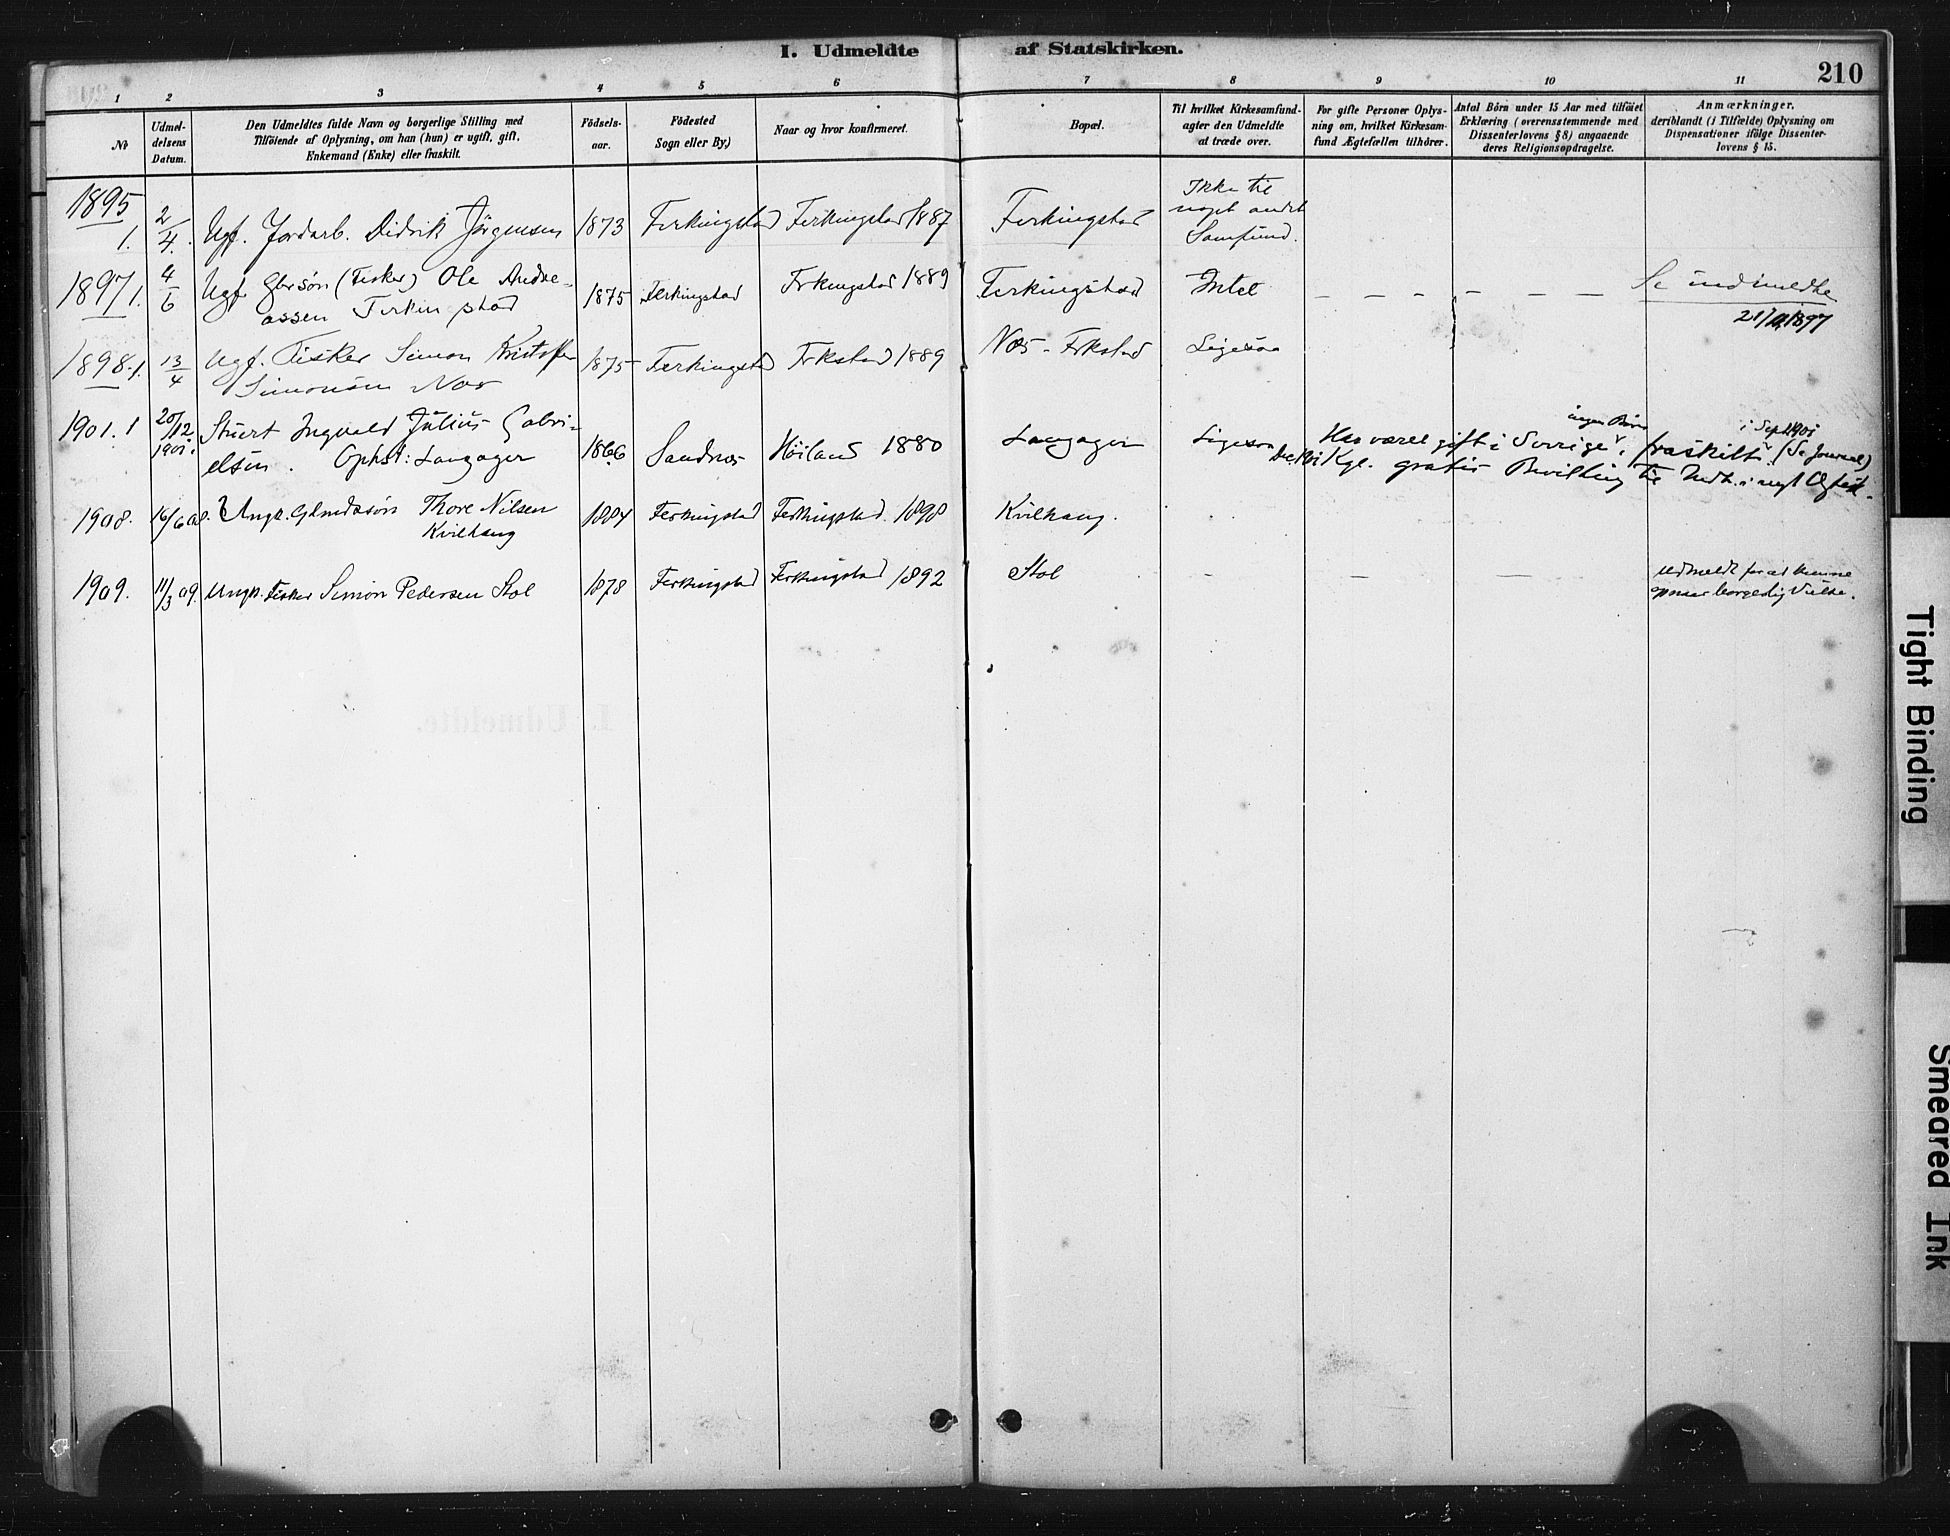 I. Udmeldte af Statskirken.
210
1 2 3 4 5 6 7 8 9 10 11
No
Udmel-
delsens
Datum.
Den Udmeldtes fulde Navn og borgerlige Stilling med
Tilföiende af Oplysning, om han (hun) er ugift, gift,
Enkemand (Enke) eller fraskilt.
Födsels-
aar.
Födested
Sogn eller By.)
Naar og hvor konfirmeret.
Bopæl.
Til hvilket Kirkesamfund-
agter den Udmeldte
at træde over.
For gifte Personer Oplys-
ning om, hvilket Kirkesam-
fund Ægtefællen tilhörer.
Antal Börn under 15 Aar med tilföiet
Erklæring (overensstemmende med
Dissenterlovens § 8) angaaende
deres Religionsopdragelse.
Anmærkninger,
deriblandt (i Tilfælde) Oplysning om
Dispensationer ifölge Dissenter-
lovens § 15.
1895
1. 2/4. Ugf. Jordarb. Didrik Jörgensen 1873 Ferkingstad Ferkingstad 1887 Ferkingstad
Ikke til
noget andet
Samfund.
1897/1. 4/6 Ugf. (Fisker) Ole Andre-
assen Ferkingstad
1875 Ferkingstad Frkingstad 1889 Ferkingstad Intet – – – – – –
Se indmeldte
21/11 1897
1898.1. 13/4 Ugf. Fisker Simon Kristoffer
Simonsen Næs
1875 Ferkingstad Frkstad 1889 Næs - Frkstad Ligesaa
1901.1 20/12
1901.
Stuert Ingvald Julius Gabri-
elsen. Ophst: Langager
1866 Sandnæs Höiland 1880 Langager Ligesaa
ingen Börn
i Sept 1901
Har været gift i Sverrige, fraskilt. (Se Journal)
Kgl. gratis Bevilling til Indt. i nyt Ægtesk.
1908. 16/6 08. Ungk. Thore Nilsen
Kvilhaug
1884 Ferkingstad Ferkingstad. 1898 Kvilhaug.
1909. 11/3 09. Ungk. Fisker Simon Pedersen Stol 1878 Ferkingstad Ferkingstad 1892 Stol – – –
Udmeldt for at kunne
borgerlig Vielse.
Tight Binding
Smeared Ink